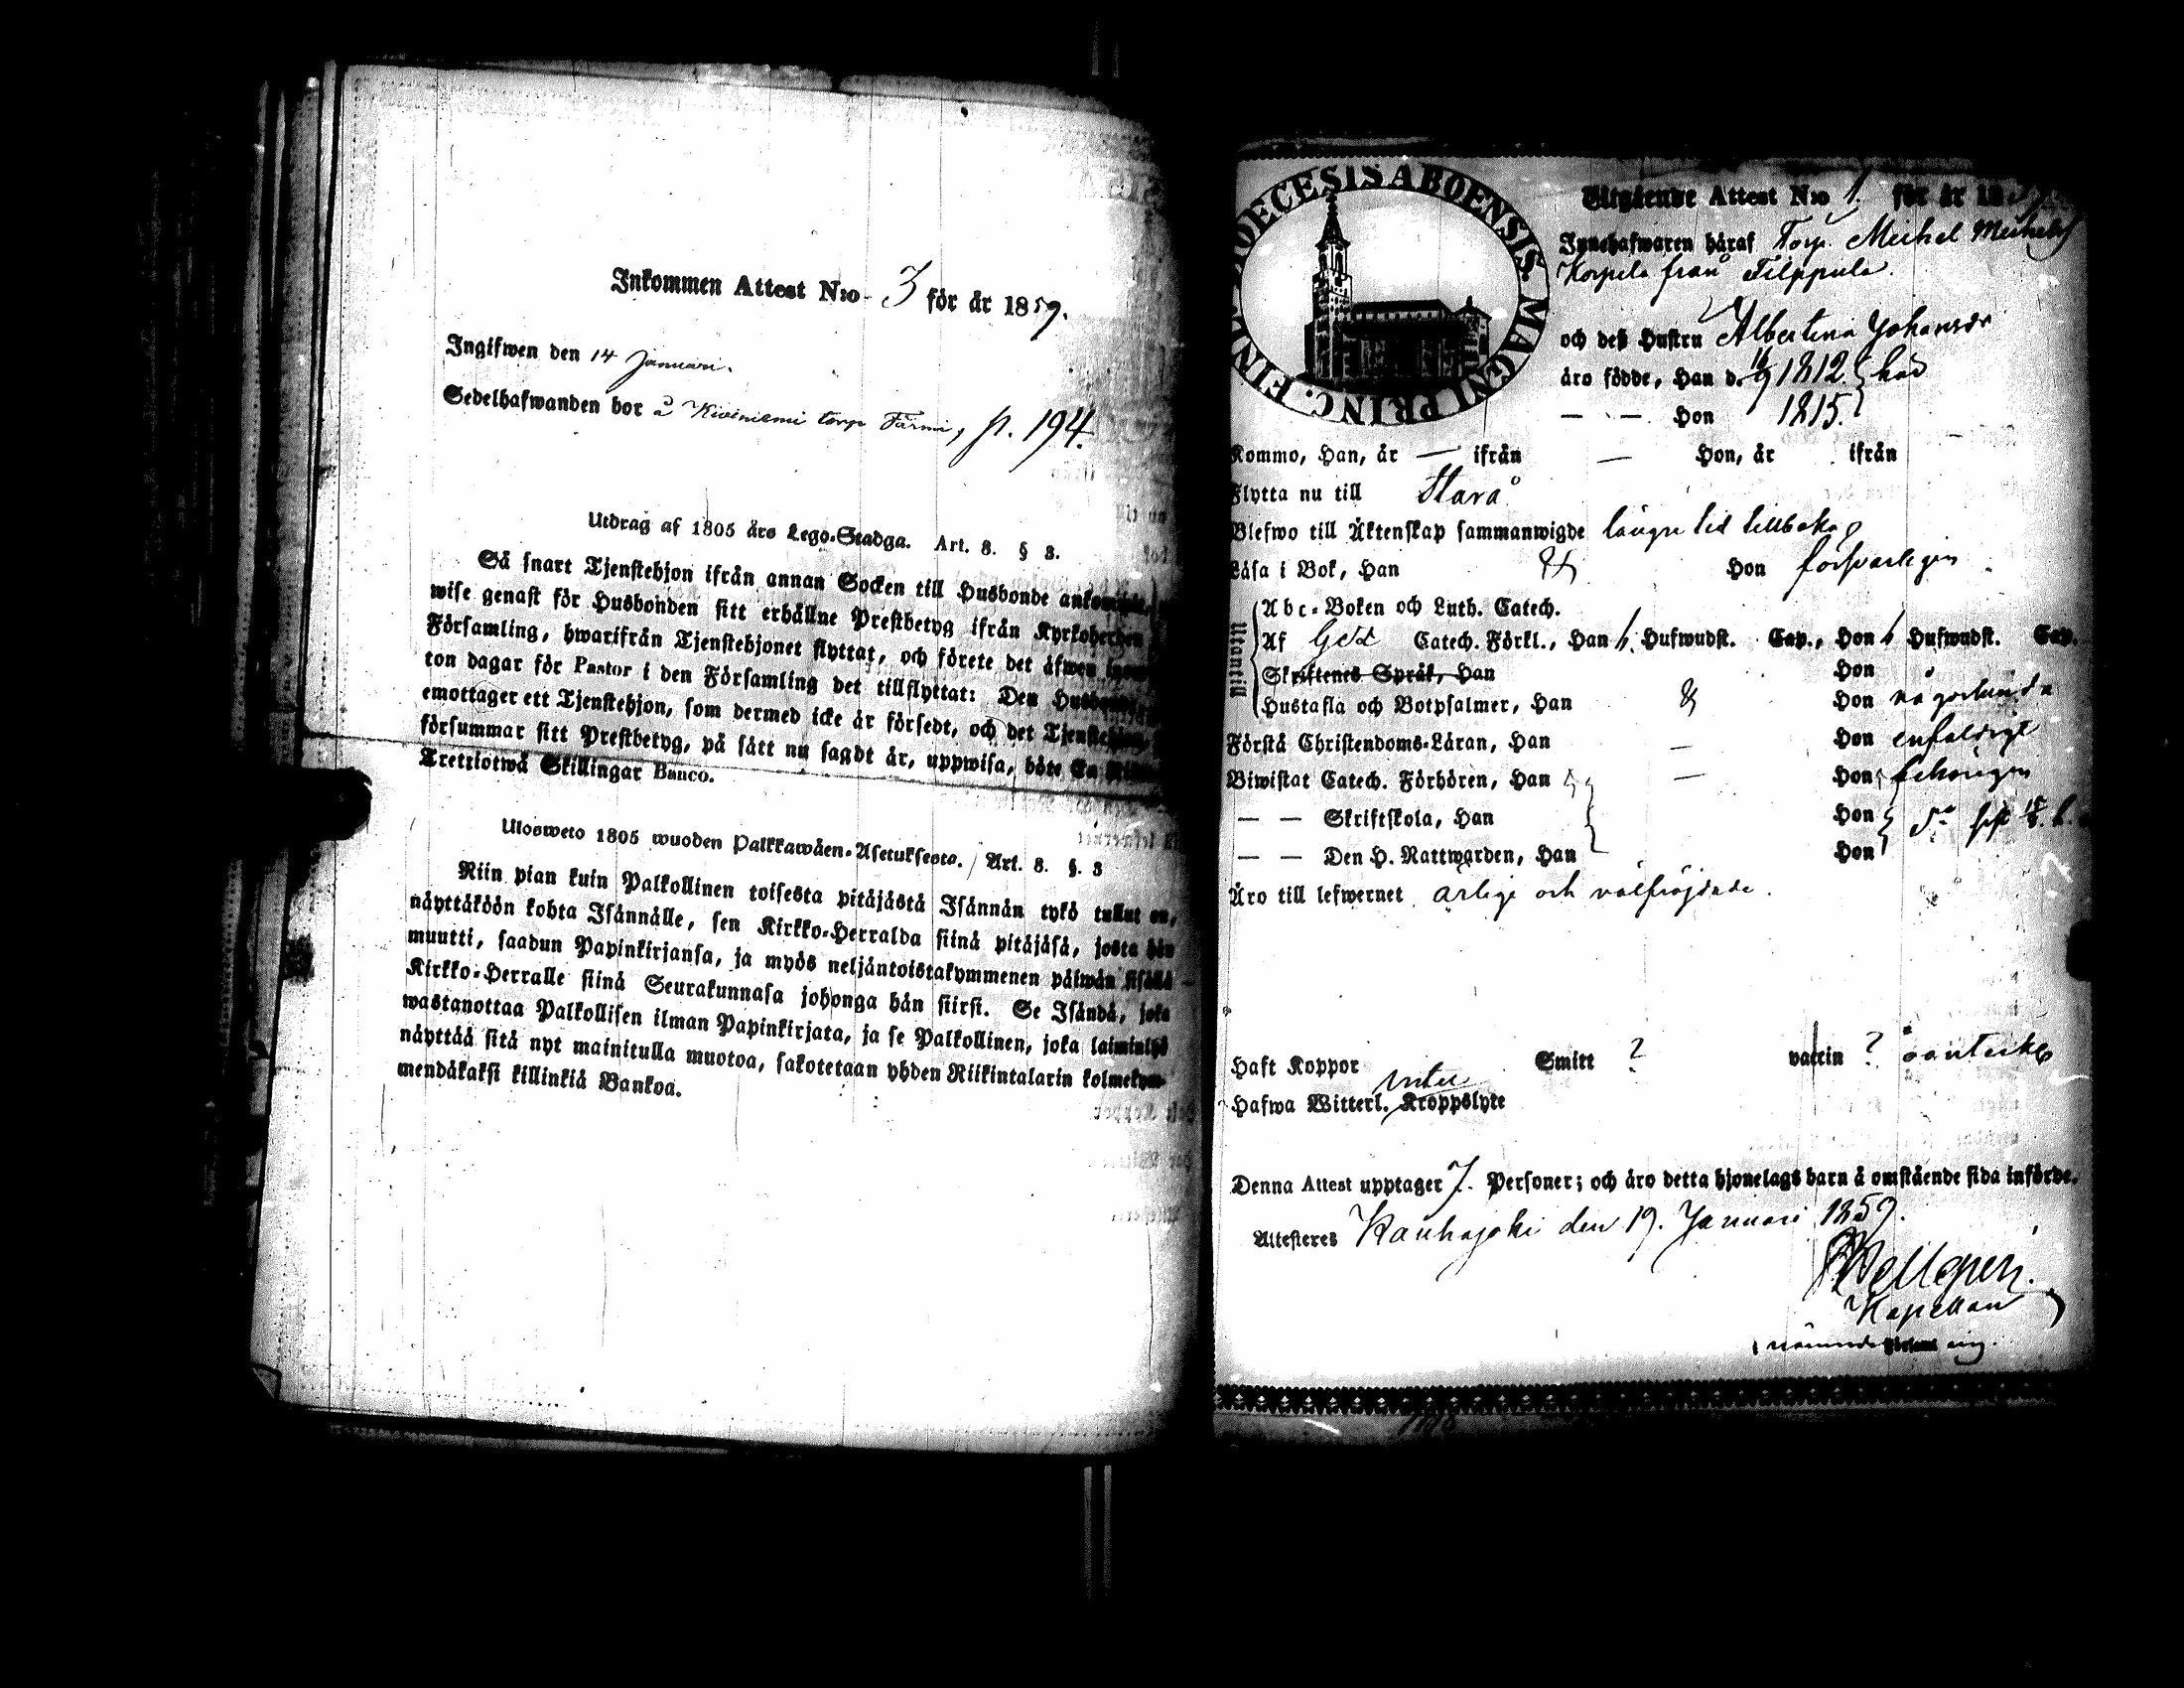 Inkommen Attest N:o 3 för år 1859.
Ingifwen den 14 Januari.
Sedelhafwanden bor å Kiviniemi torp Färmi, p. 194.
Utdrag af 1805 års Lego-Stadga. Art. 8. § 3.
Så snart Tjenstehjon ifrån annan Socken till Husbonde
wise genast för Husbonden sitt erhållne Prestbetyg ifrån Kyrkoherden
Församling, hwarifrån Tjenstehjonet flyttat, och förete det äfwen
ton dagar för Pastor i den Församling det tillflyttat: Den
emottager ett Tjenstehjon, som dermed icke är försedt, och det
försummar sitt Prestbetyg, på sätt nu sagdt är, uppwisa, böte En
Tretriotwå Skillingar Banco.
Ulosweto 1805 wuoden Palkkawäen-Asetuksesta. Art. 8. §. 3
Niin pian kuin Palkollinen toisesta pitäjästä Isännän tykö tullut on,
näyttäköön kohta Isännälle, sen Kirkko-Herralda siinä pitäjäsä, josta hän
muutti, saadun Papinkirjansa, ja myös neljäntoistakymmenen päiwän sisällä
Kirkko-Herralle siinä Seurakunnasa johonga hän siirsi. Se Isändä, joka
wastanottaa Palkollisen ilman Papinkirjata, ja se Palkollinen, joka laiminlyö
näyttää sitä nyt mainitulla muotoa, sakotetaan yhden Riikintalarin kolmekym-
mendäkaksi killinkiä Bankoa.
DIOECESIS ABOENSIS MAGNI PRINC. FINL.
Utgående Attest N:o 1. för år 18
Innehafwaren häraf Torp. Michel Michels
Korpela från Filppula.
och deß Hustru Albertina Johansdr
äro födde, Han d. 16/9 1812 här
— — Hon 1815.
Kommo, Han, år — ifrån — Hon, år ifrån
Flytta nu till Ilara
Blefwo till Äktenskap sammanwigde längre tid tillbaka
Läsa i Bok, Han & Hon försvarligen
Utantill
Abc-Boken och Luth. Catech.
Af Catech. Förkl., Han Hufwudst. Cap., Hon Hufwudst. Cap.
Skriftenes Språk, Han Hon
Hustafla och Botpsalmer, Han & Hon någorlunda
Förstå Christendoms-Läran, Han — Hon enfaldigt
Biwistat Catech. Förhören, Han — Hon behörigen
— — Skriftskola, Han Hon
— — Den H. Nattwarden, Han Hon
Äro till lefwernet ärlige och välfrejdade.
Haft Koppor Smitt ? vaccin ? oanteckn
Hafwa Witterl. Kroppslyte
Denna Attest upptager 7. Personer; och äro detta hjonelags barn å omstående sida införde.
Attesteres Kauhajoki den 19. Januari 1859.
Kapellan